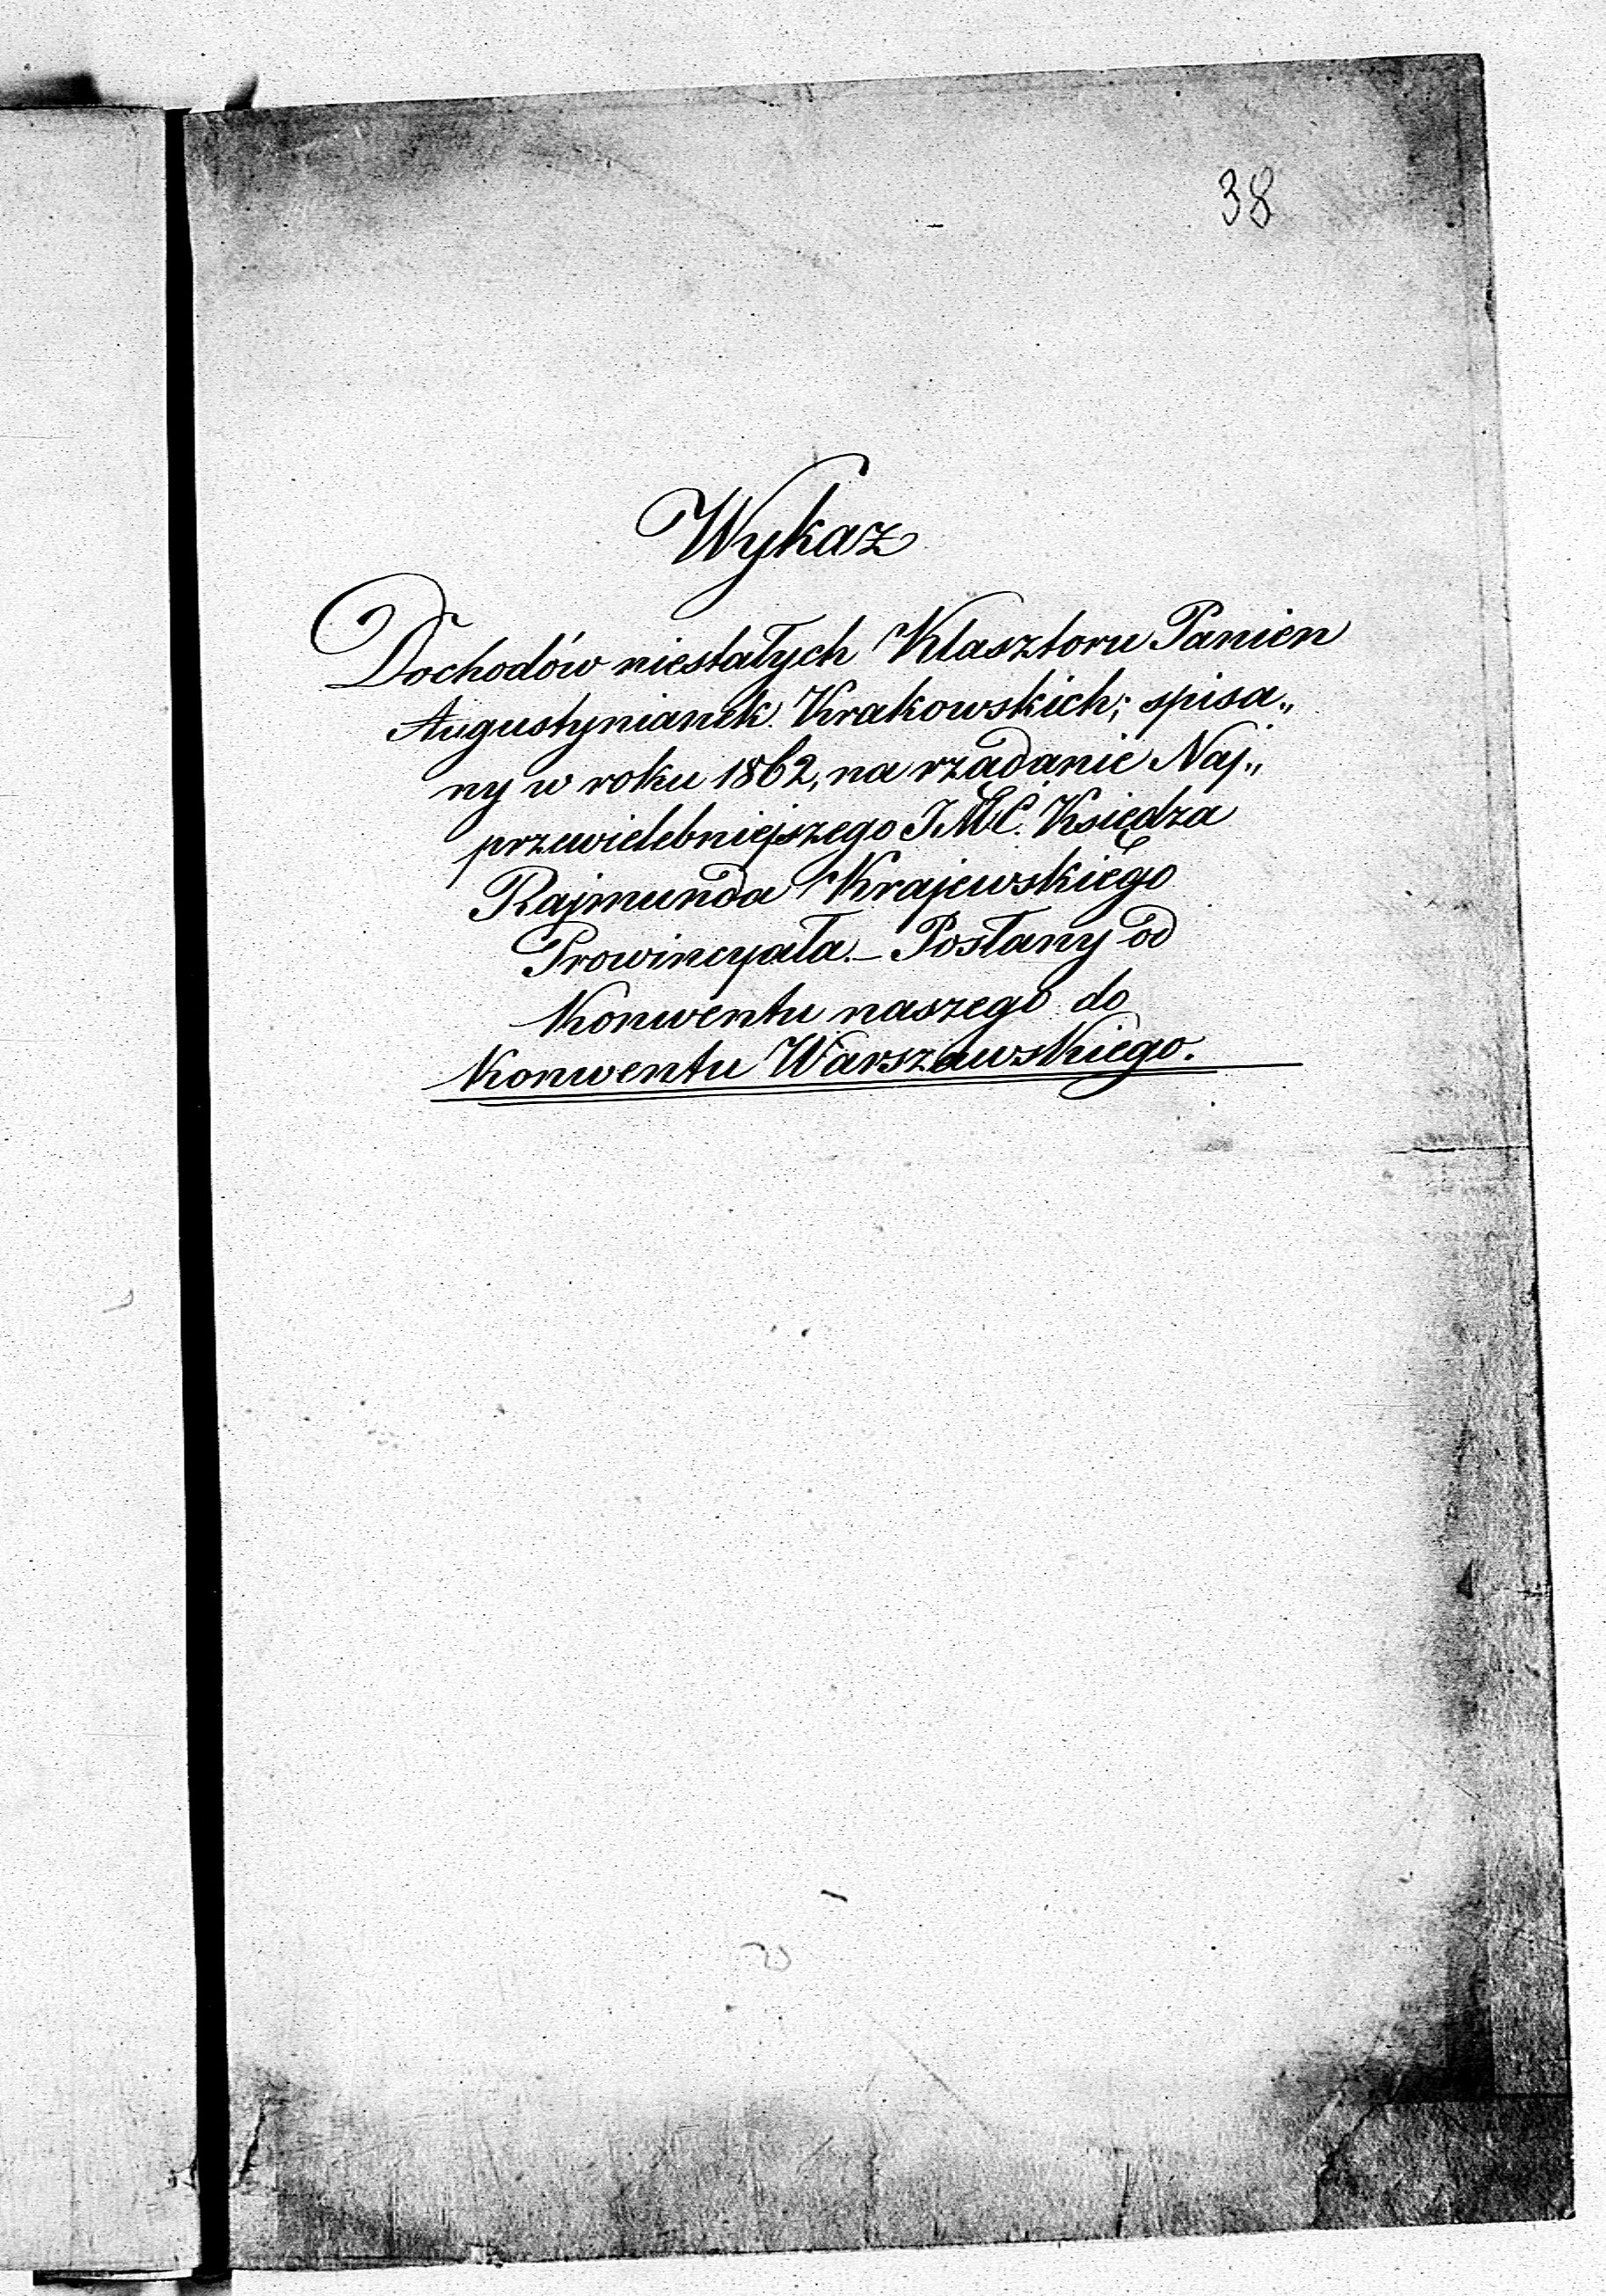 38
Wykaz
Dochodów niestałych Klasztoru Panien
Augustynianek Krakowskich; spisa„
ny w roku 1862, na rządanie Naj„
przewielebniejszego JMC. Księdza
Rajmunda Krajewskiego
Prowincyała. – Posłany od
Konwentu naszego do
Konwentu Warszawskiego.